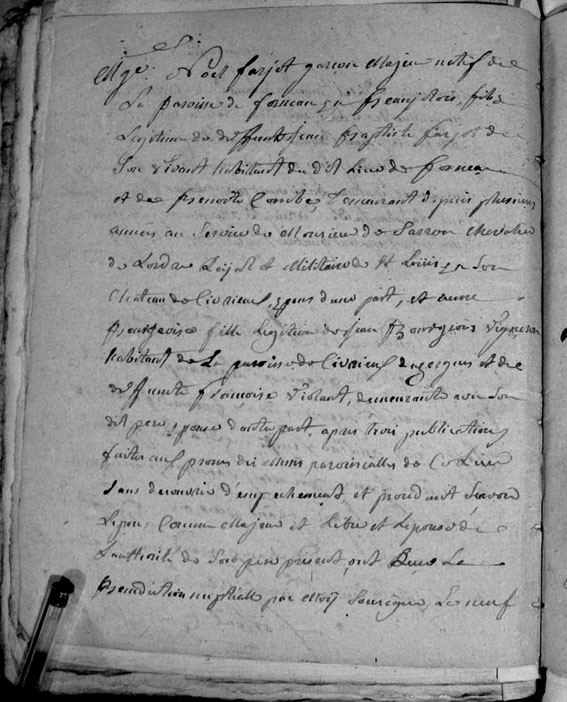 Mge. Noël farjot garcon Majeur natif de
La paroisse de forneau en Beaujolois, fils
Legitime de deffunt jean Baptiste farjot de
Son vivant habitant du dit Lieu de forneau
et de Benoitte Combe, demeurant depuis plusieurs
années au Service de Monsieur de Sarron chevalier
de Lordre Roÿal et Militaire de St Loüis en Son
chateau de Civrieux, epoux d'une part, et anne
Bourgeoise fille Legitime de jean Bourgeois Vigneron
habitant de La paroisse de Civrieux dazergues et de
deffunte françoise Violant, demeurante avec Son
dit pere, epouse d'autre part, apres trois publications
faites aux prones des Messes paroissialles de Ce Lieu
Sans decouvrir d'empechement, et procedant Scavoir
Lepoux Comme Majeur et Libre et Lepouse de
Lauthorité de Son pere present, ont Recu La
Benediction nuptialle par Moÿ Soussigne, Le neuf